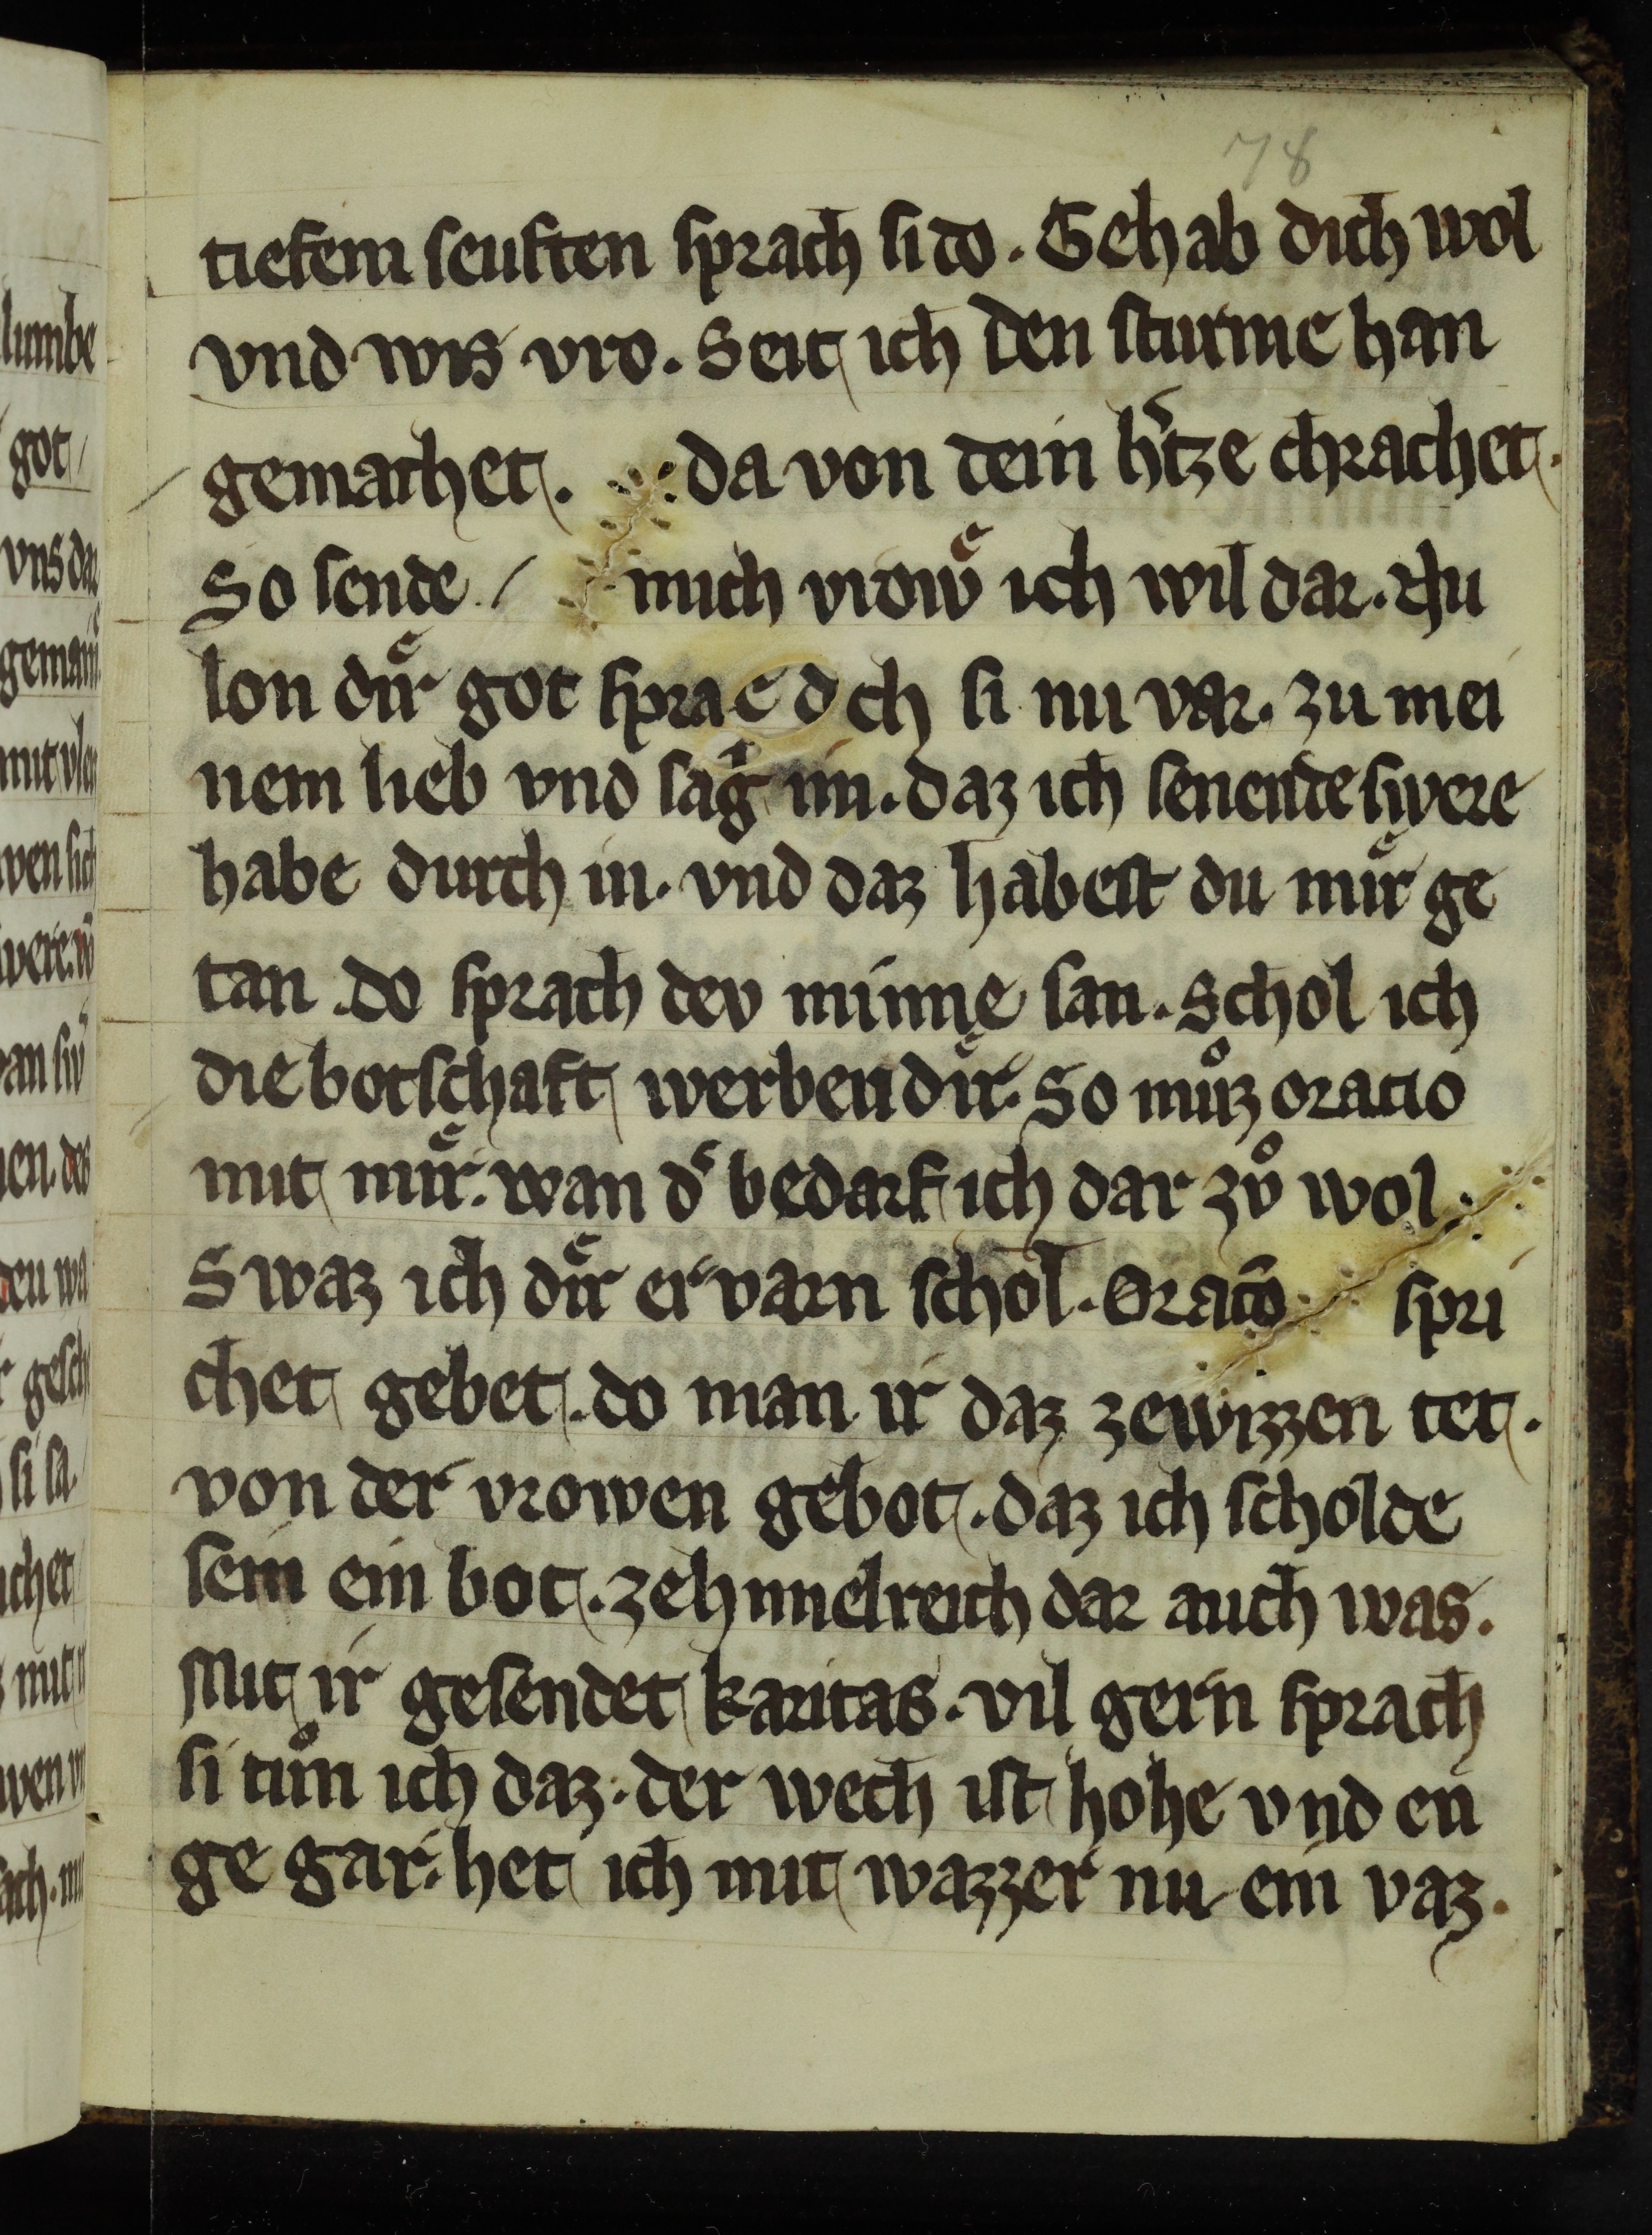 78
tiefem seuften sprach si do. Gehab dich wol
vnd wis vro. Seit ich den sturme han
gemachet. da von dein h̾tze chrachet.
So sende mich vrowͤ ich wil dar. Thu
lon duͤr got sprach si nu var. zu mei
nem lieb vnd sag im. daz ich senende swere
habe durch in. vnd daz habest du muͤr ge
tan. do sprach dev minne san. Schol ich
die botschaft werben duͤr. So muͦz oratio
mit muͤr. wan d̾ bedarf ich dar zvͦ wol.
Swaz ich duͤr ervarn schol. Oracō spri
chet gebet. do man ir daz zewizzen tet.
von der vrowen gebot. daz ich scholde
sein ein bot. zehimelreich dar auch was.
Mit ir gesendet karitas. vil gern sprach
si tuͦn ich daz. der wech ist hohe vnd en
ge gar. het ich mit wazzer nu ein vaz.